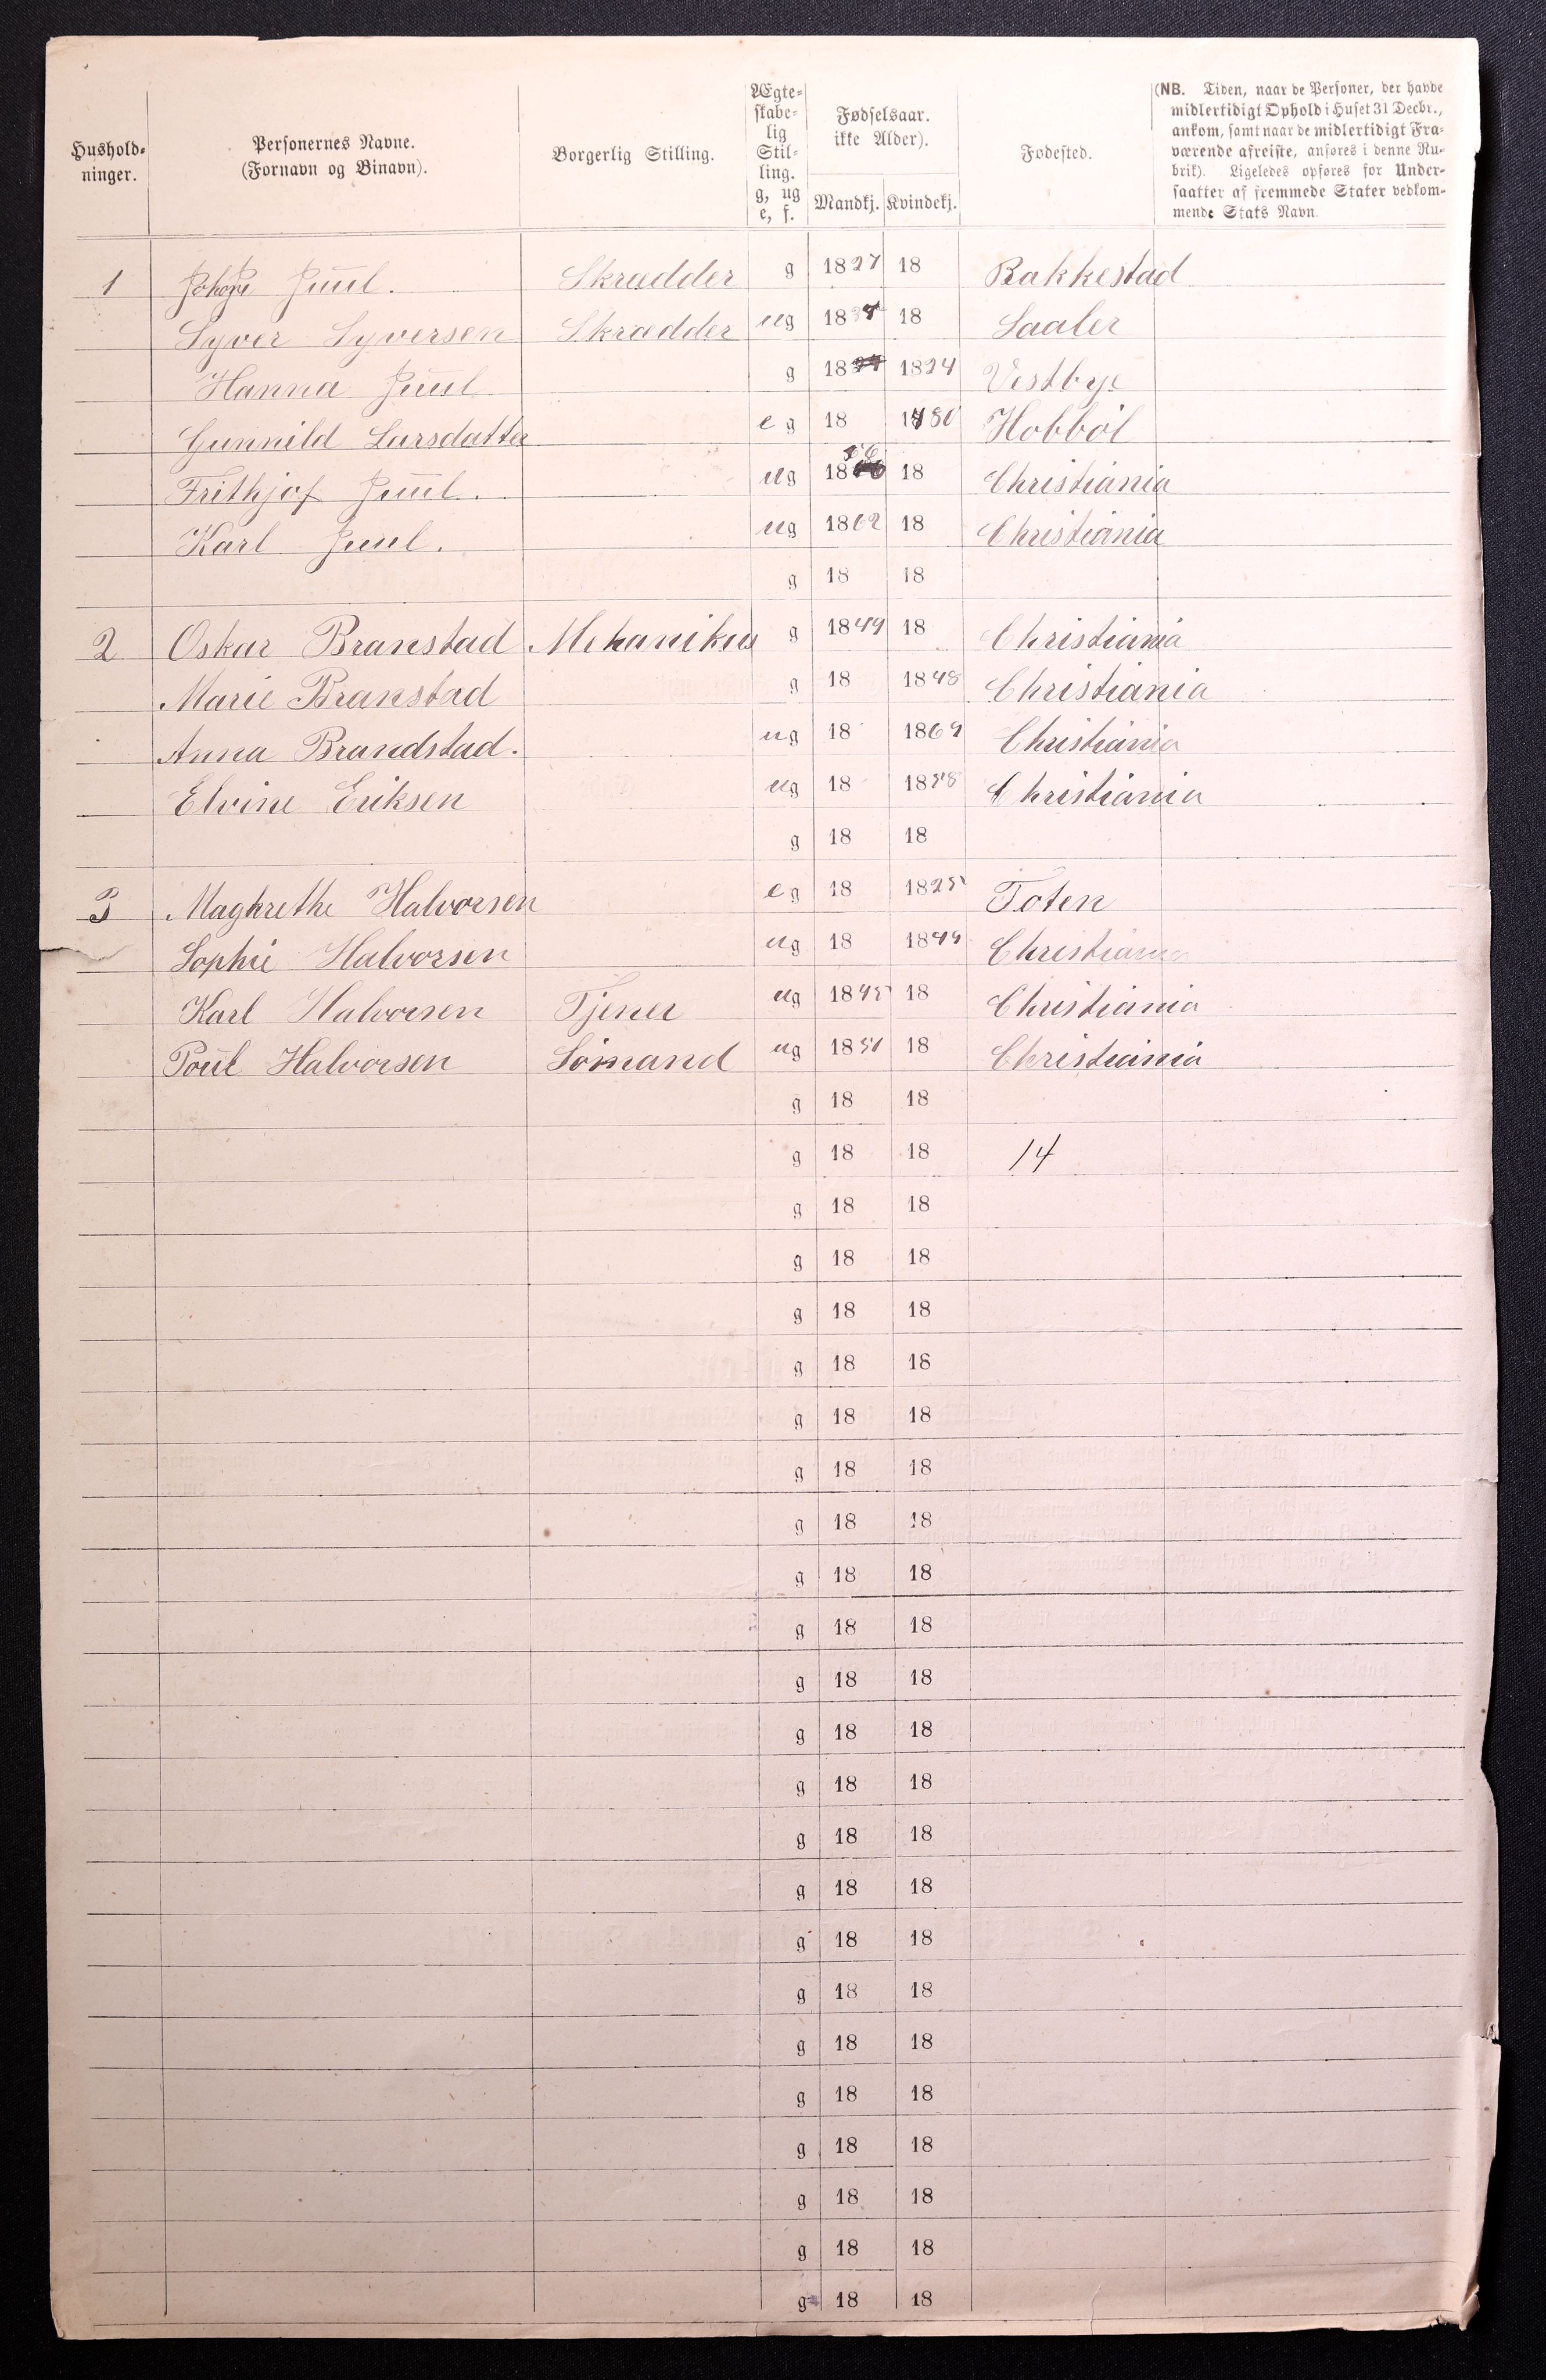 Hushold-
ninger.
Personernes Navne.
(Fornavn og Binavn).
Borgerlig Stilling.
Ægte-
skabe-
lig
Stil-
ling.
g, ug
e, f.
Fødselsaar.
ikke Alder).
Mandkj. Kvindekj.
Fødested.
(NB. Tiden, naar de Personer, der havde
midlertidigt Ophold i Huset 31 Decbr.,
ankom, samt naar de midlertidigt Fra-
værende afreiste, anføres i denne Ru-
brik). Ligeledes opføres for Under-
saatter af fremmede Stater vedkom-
mende Stats Navn.
1 Juul. Skrædder g 1827 18 Rakkestad
Syver Syversen Skrædder ug 18 18 Saaler
Hanna Juul g 18 1824 Vestbye
Gunnild Larsdatter e g 18 1780 Hobböl
Frithjof Juul. ug 18 18 Christiania
Karl Juul. ug 1862 18 Christiania
g 18 18
2 Oskar Branstad Mekanikus g 1849 18 Christiania
Marie Branstad g 18 1848 Christiania
Anna Brandstad. ug 18 1869 Christiania
Elvine Eriksen ug 18 1858 Christiania
g 18 18
3 Maghrethe Halvorsen e g 18 1825 Toten
Sophie Halvorsen ug 18 1849 Christiania
Karl Halvorsen Tjener ug 1845 18 Christiania
Poul Halvorsen Sömand ug 1851 18 Christiania
g 18 18
g 18 18 14
g 18 18
g 18 18
g 18 18
g 18 18
g 18 18
g 18 18
g 18 18
g 18 18
g 18 18
g 18 18
g 18 18
g 18 18
g 18 18
g 18 18
g 18 18
g 18 18
g 18 18
g 18 18
g 18 18
g 18 18
g 18 18
g 18 18